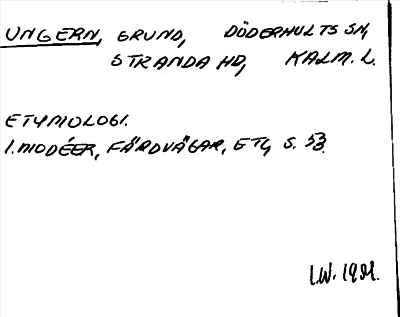 UNGERN, GRUND, DÖDERHULTS SN,
STRANDA HD, KALM. L.
ETYMOLOGI.
I. MODÉER, FÄRDVÄGAR, ETC, S. 53.
I.W. 1981.